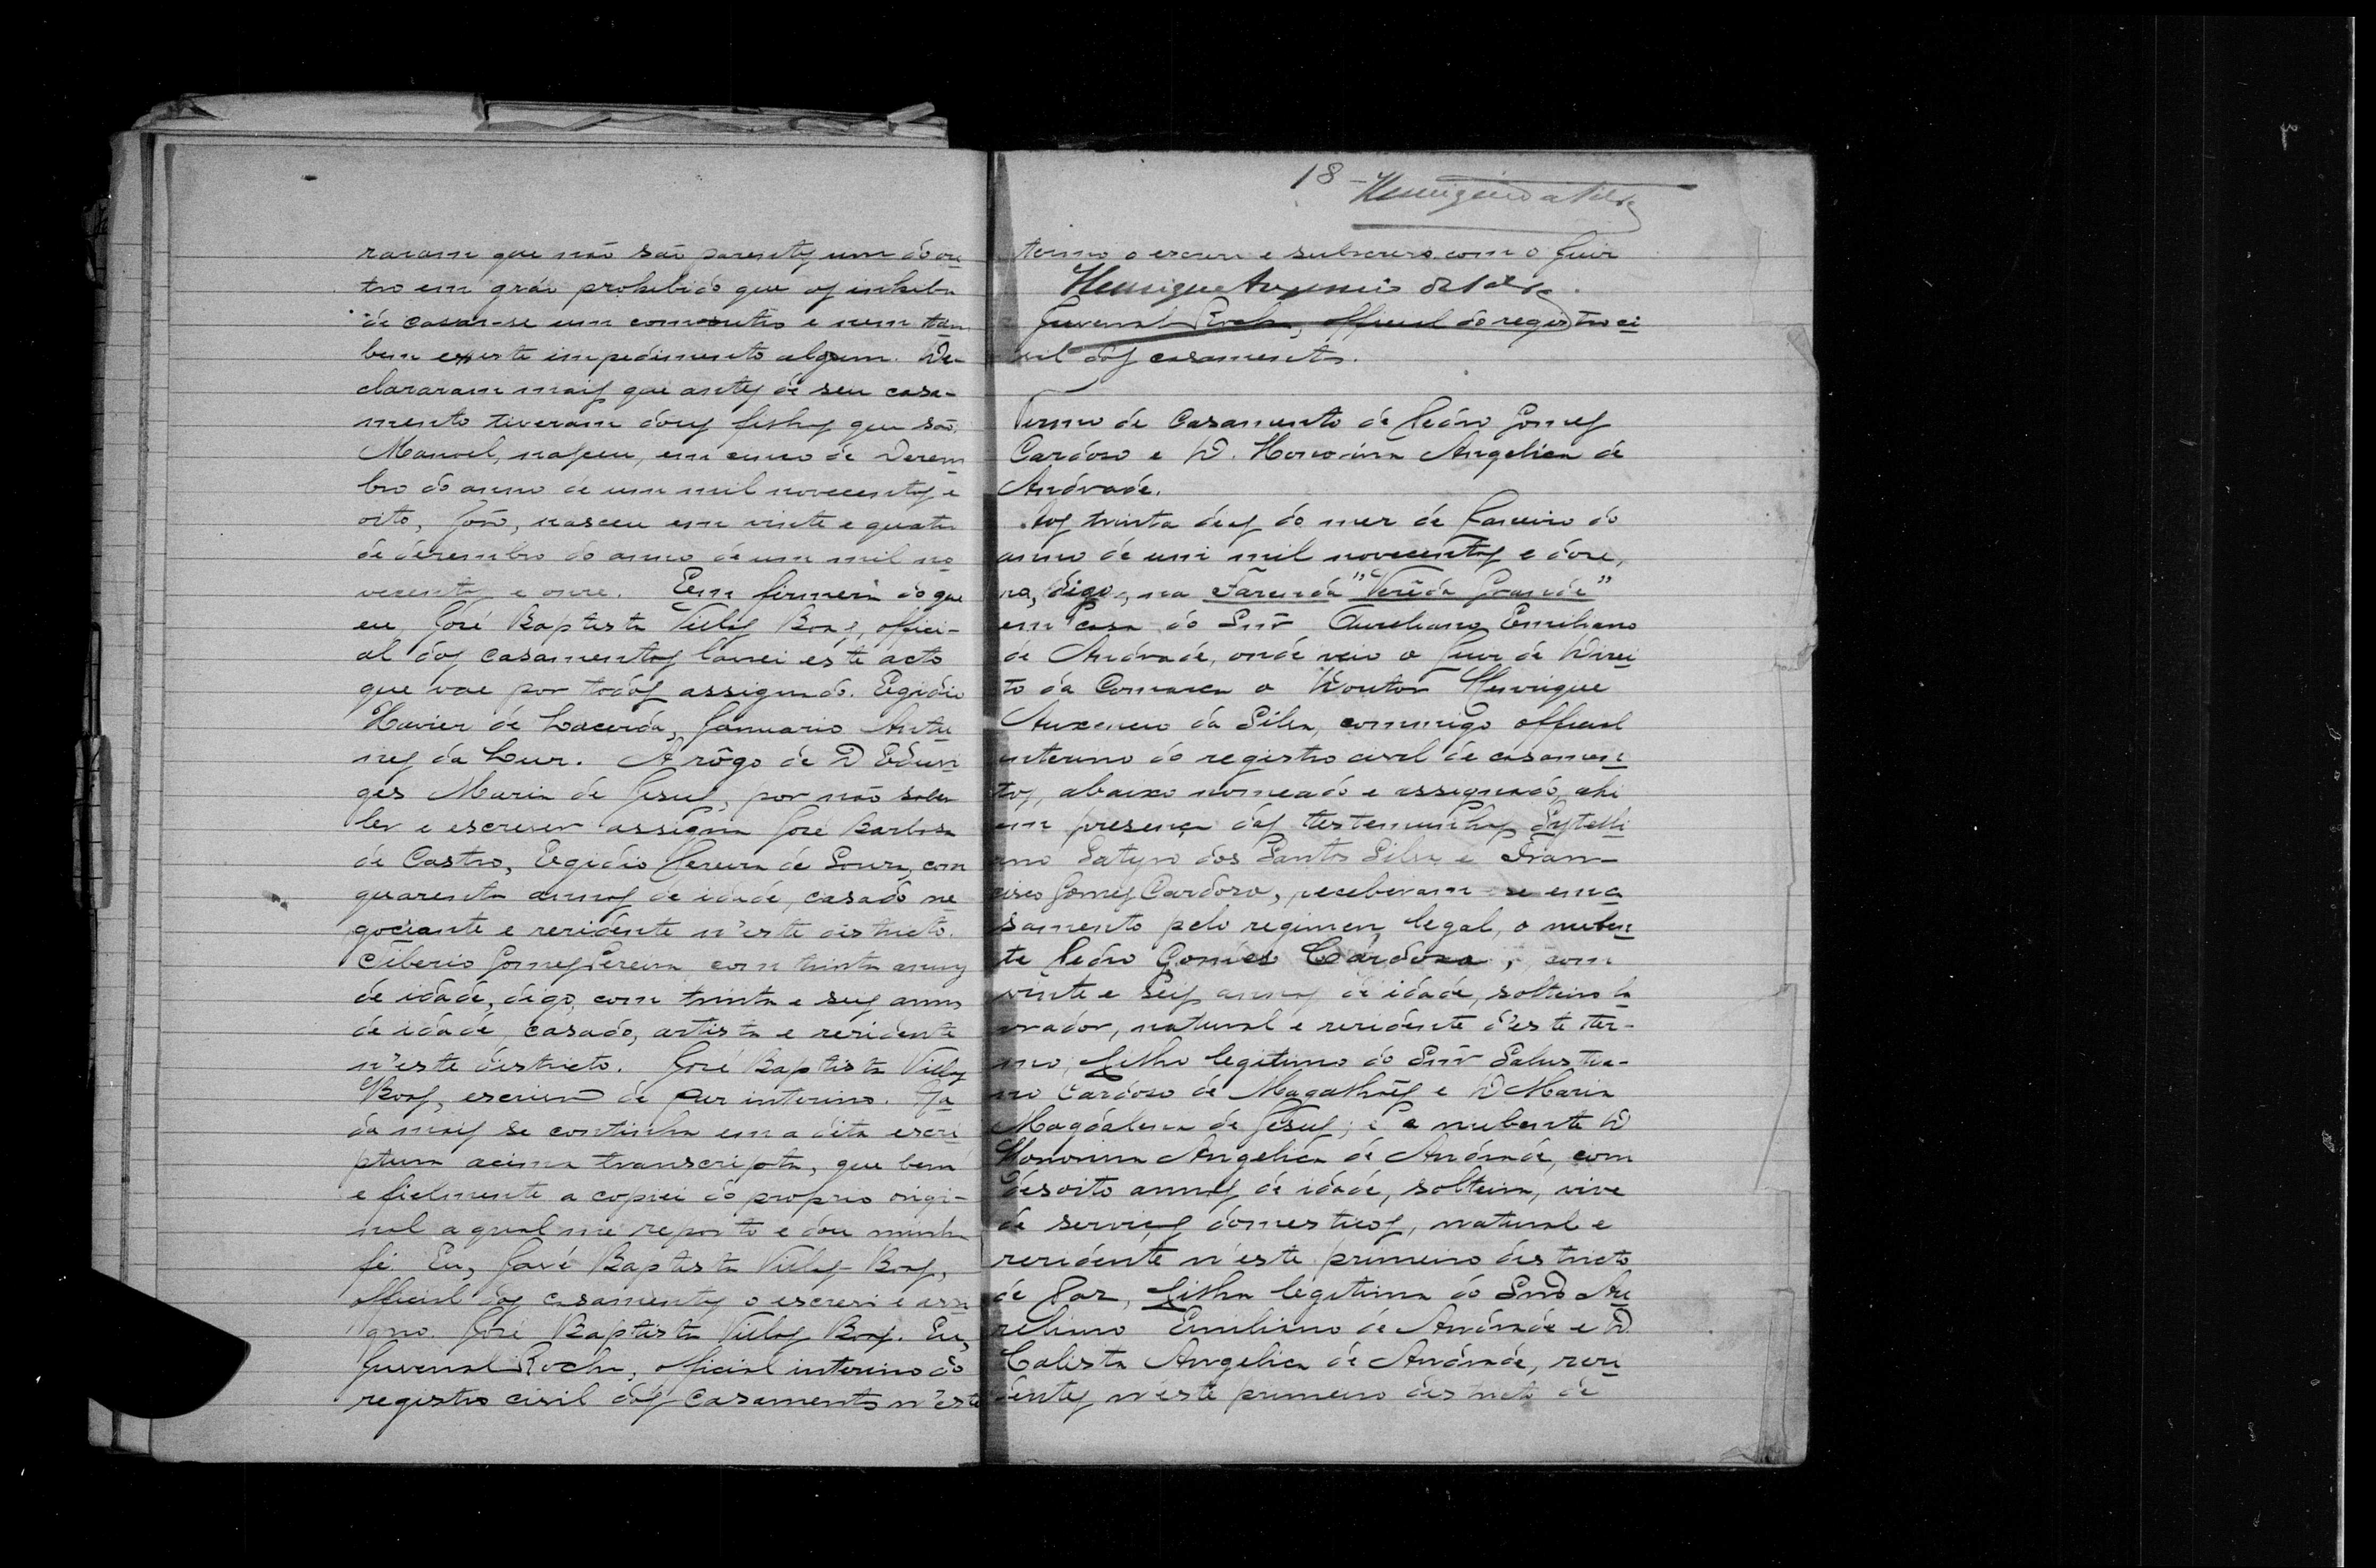 raram que não são parentes um do ou
tro em gráo prohibido que os inhiba
de casar-se um com outro e nem tam
bem existe impedimento algum. De
clararam mais que antes de seu casa-
mento tiveram dous filhos que são,
Manoel, nasceu, em cinco de Dezem
bro do anno de um mil novecentos e
oito, João, nasceu em vinte e quatro
de dezembro do anno de um mil no
vecentos e onze. Em firmeza do que
eu José Baptista Villas Boas, offici-
al dos casamentos lavrei este acto
que vae por todos assignado. Egidio
Xavier de Lacerda, Januario Antu
nes da Luz. A rôgo de D Eduvi
ges Maria de Jesus, por não saber
ler e escrever assigna José Barbosa
de Castro, Egidio Pereira de Souza, com
quarenta annos de idade, casado ne
gociante e rezidente n'este districto.
Tiberio Gomes Pereira com trinta annos
de idade, digo, com trinta e seis annos
de idade, casado, artista e rezidente
n'este districto. José Baptista Villas
Boas, escrivão de Paz interino. Na
da mais se continha em a dita escri
ptura acima transcripta, que bem
e fielmente a copiei do proprio origi-
nal a qual me reporto e dou minha
fé. Eu, José Baptista Villas-Boas,
official dos casamentos o escrevi e assi
gno. José Baptista Villas Boas. Eu,
Juvenal Rocha, official interino do
registro civil dos casamentos n'este
18 - Henrique da Silva
termo o escrevi e subscrevo com o Juiz
Henrique Auxencio da Silva.
Juvenal Rocha, official do registro ci
vil dos casamentos.
Termo de Casamento de Pedro Gomes
Cardoso e D. Honorina Angelica de
Andrade.
Aos trinta dias do mez de Janeiro do
anno de um mil novecentos e doze,
na, digo, na Fazenda "Verêda Grande"
em casa do Snr Aureliano Emiliano
de Andrade, onde veio o Juiz de Direi
to da Comarca o Doutor Henrique
Auxencio da Silva, commigo official
interino do registro civil de casamen
tos, abaixo nomeado e assignado, ahi
em presença das testemunhas
ano Satyro dos Santos Silva e Fran-
cisco Gomes Cardozo, receberam-se em ca
samento pelo regimen legal, o nuben
te Pedro Gomes Cardoso, com
vinte e seis annos de idade, solteiro la
vrador, natural e rezidente d'este ter-
mo, filho legitimo do Snr Salustia-
no Cardoso de Magalhães e D Maria
Magdalena de Jesus; e a nubente D
Honorina Angelica de Andrade, com
desoito annos de idade, solteira, vive
de serviços domesticos, natural e
rezidente n'este primeiro districto
de Paz, filha legitima do Snr Au
reliano Emiliano de Andrade e D
Calista Angelica de Andrade, rezi
dentes n'este primeiro districto de